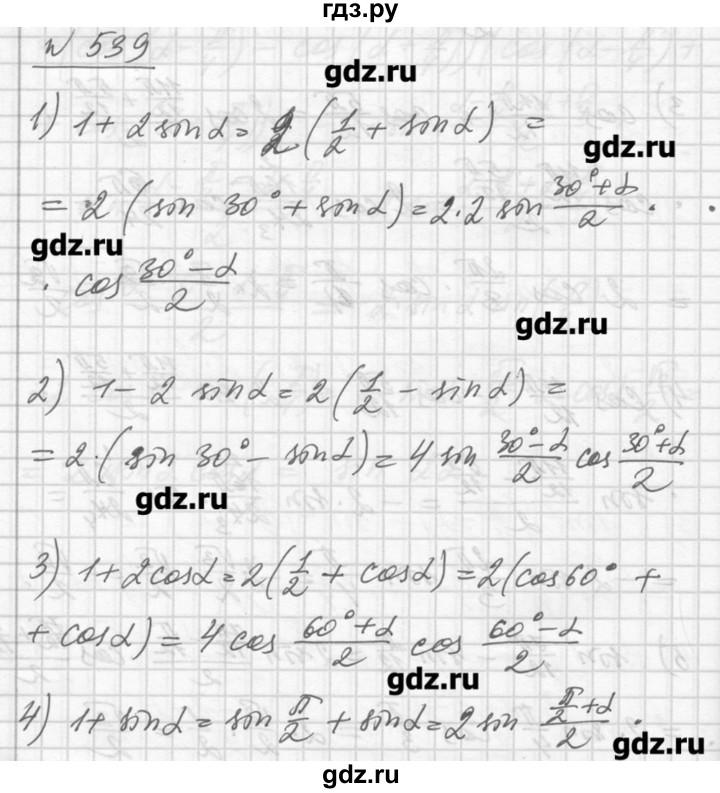 гдз.ру
№ 539
gdz.ru
1) 1 + 2 sin α = 2 (1/2 + sin α) =
gdz.ru
= 2 (sin 30° + sin α) = 2 · 2 sin (30° + α)/2 ·
gdz.ru
· cos (30° − α)/2
gdz.ru
2) 1 − 2 sin α = 2 (1/2 − sin α) =
= 2 · (sin 30° − sin α) = 4 sin (30° − α)/2 cos (30° + α)/2
gdz.ru
3) 1 + 2 cos α = 2 (1/2 + cos α) = 2 (cos 60° +
+ cos α) = 4 cos (60° + α)/2 cos (60° − α)/2
gdz.ru
4) 1 + sin α = sin π/2 + sin α = 2 sin (π/2 + α)/2 ·
gdz.ru
gdz.ru